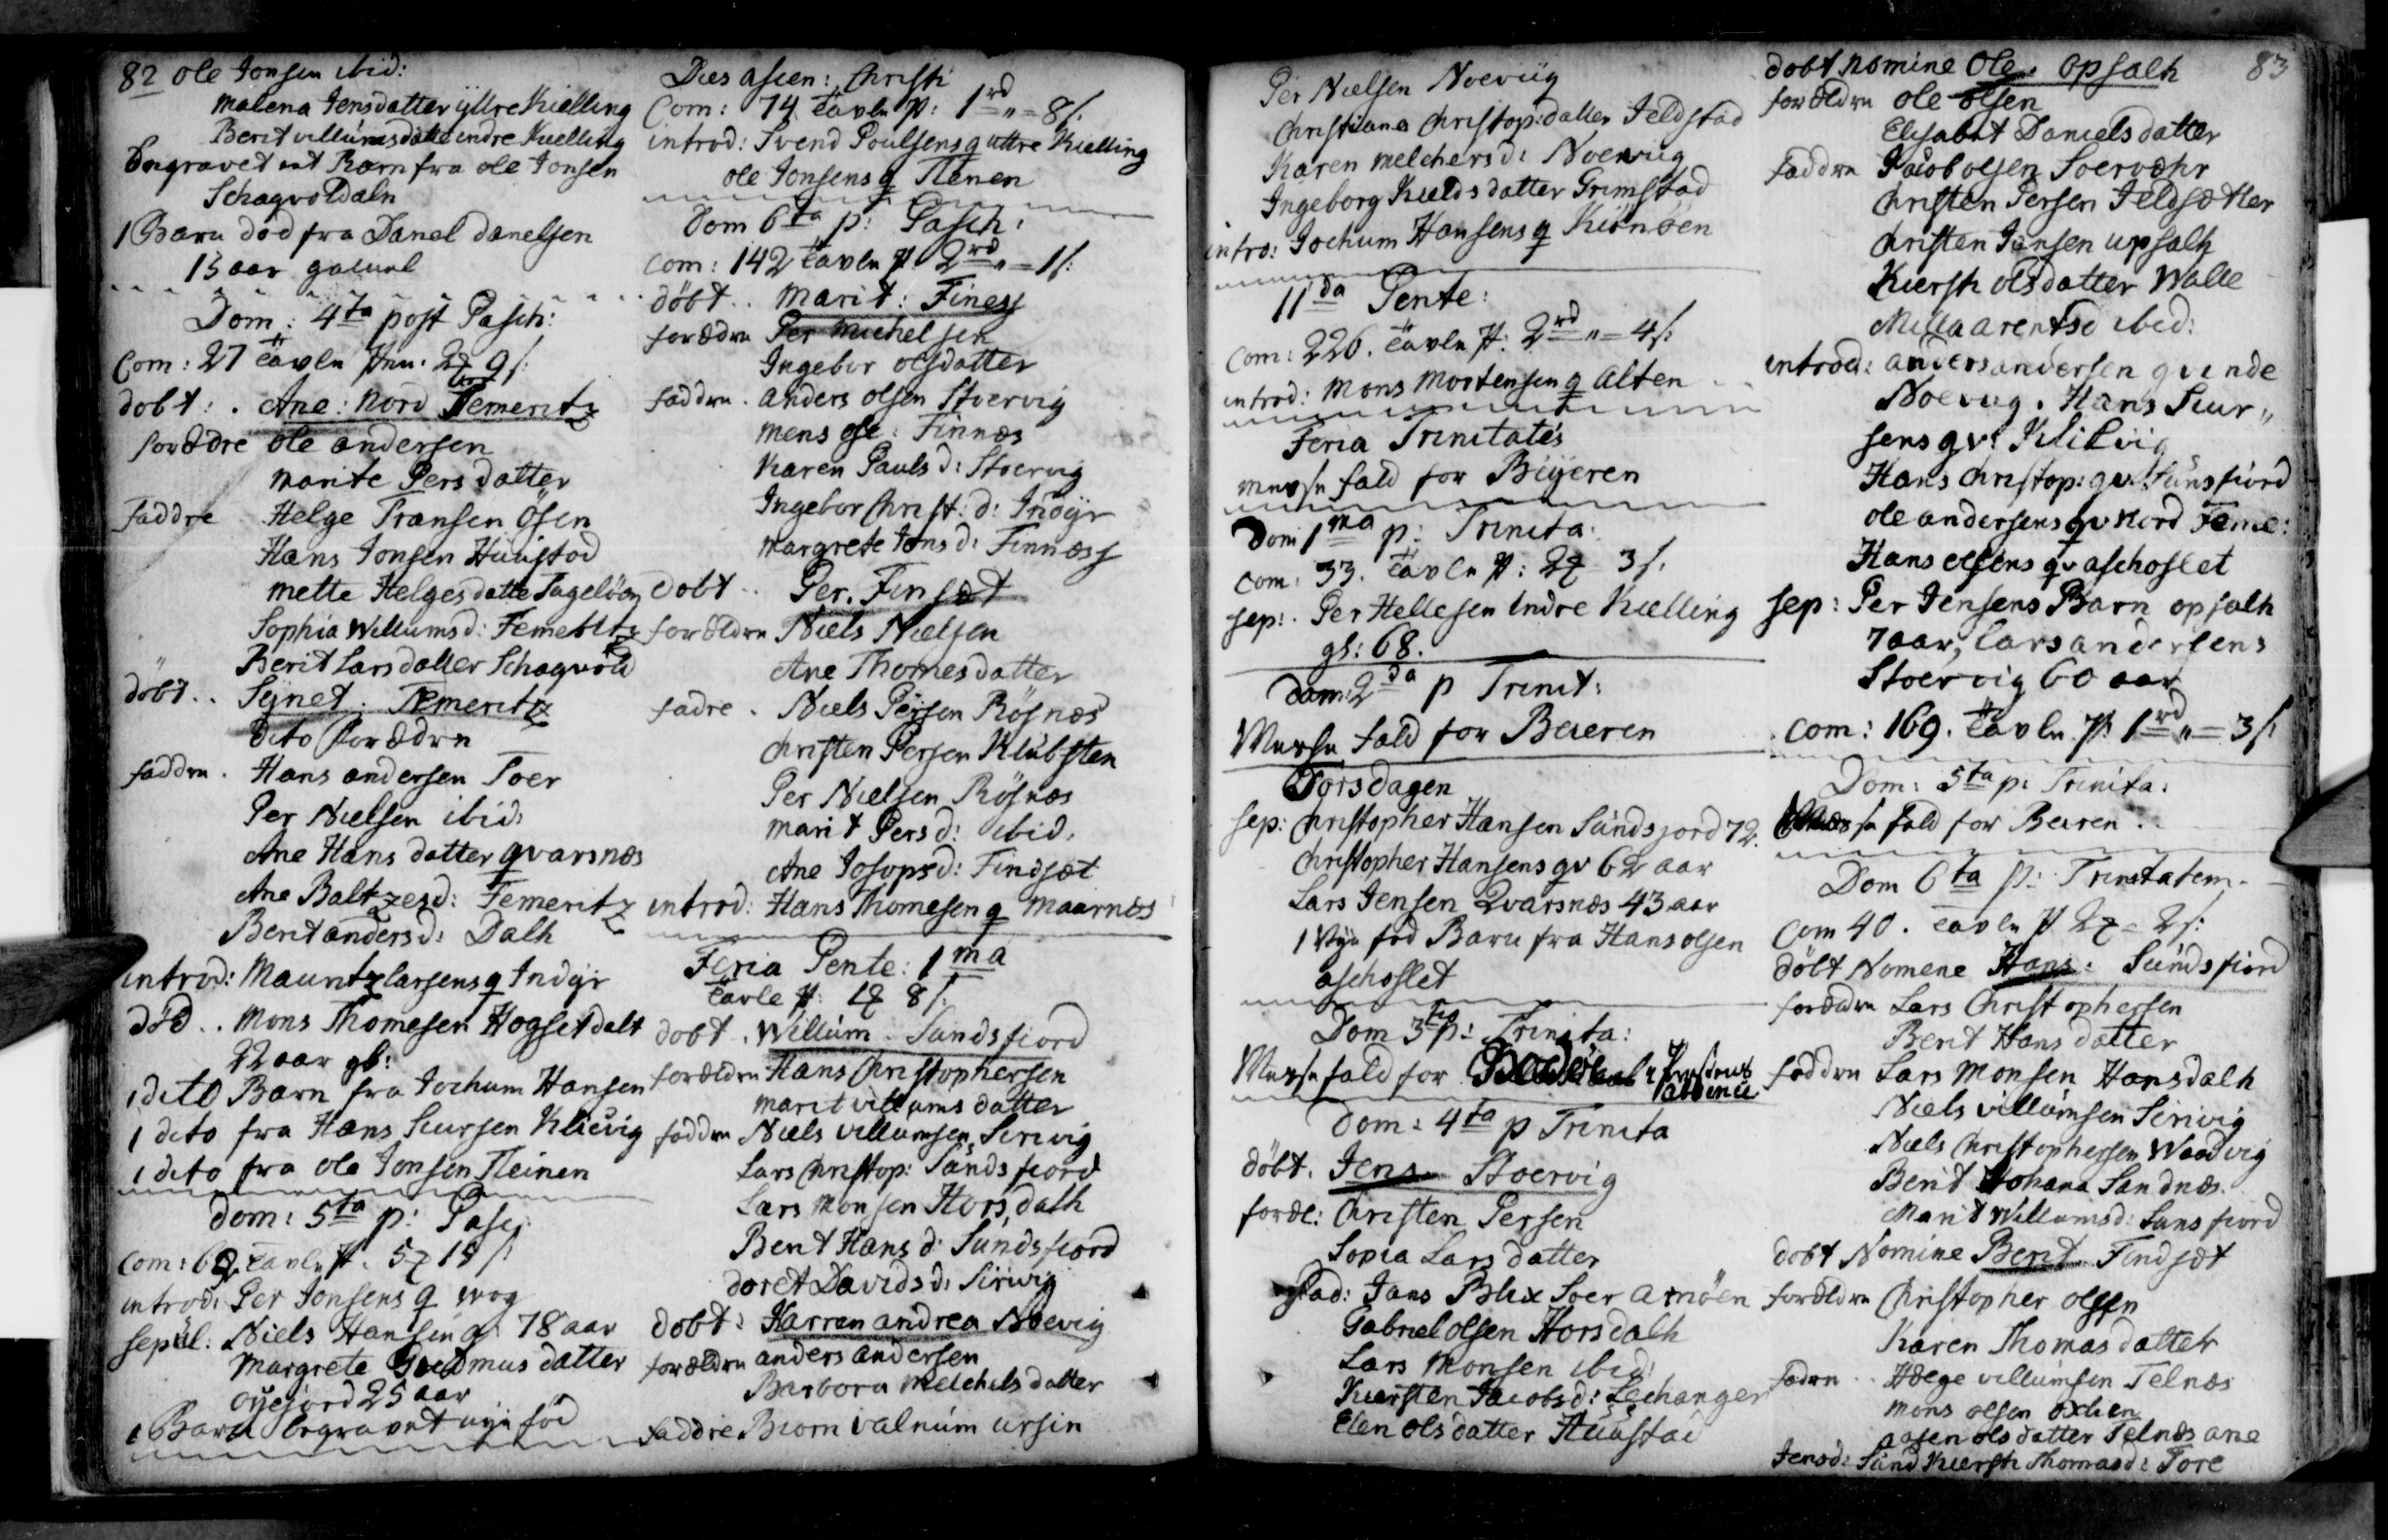 82 Ole Jonsen ibid:
Malena Jensdatter yttre Kielling
Berit villumsdatte indre Kielling
Begravet et Barn fra ole Jonsen
Schagvoldaln
1 Barn död fra Danel danelsen
13 aar gamel
Dom: 4ta post Pasch:
Com: 27 Tavln 9 s:
döbt: . Ane: Nord Femeritz
forældre Ole andersen
Marite Persdatter
Faddre Helge Transen Ösen
Hans Jonsen Huustod
mette Helgesdatte
Sophia Willumsd: Femeritz
Berit Larsdatter Schagvold
döbt .. Synet: Femeritz
dito Forældrn
faddrn . Hans andersen Toer
Per Nielsen ibid:
Ane Hansdatter qvarsnæs
Ane Baltzesd: Femeritz
Berit andersd: Dalh
introd: Mauritz larsens q Indyr
död .. Mons Thomesen Hogsetdalt
22 aar gl:
1 dito Barn fra Jochum Hansen
1 dito fra Hans Siursen Klievig
1 dito fra ole Jonsen Fleinen
Dom: 5ta p: Pasc:
Com: 69 Tavln
introd: Per Jonsens q
sepul: Niels Hansen 78 aar
Margrete datter
25 aar
1 Barn begravet nye föd
Dies ascen: Christi
Com: 74 Tavln p: 1rd „ = 8 s.
introd: Svend Poulsens q uttre Kielling
ole Jonsens q Flenen
Dom 6ta p: Pasch:
Com: 142 Tavln p. 2rd „ = 1 s:
döbt .. Marit: Finess
forældrn Per Michelsen
Ingebor olsdatter
faddrn . anders olsen Stoervig
mens ols: Finnæs
Karen Paulsd: Stoervig
Ingebor Christ: d: Indyr
Margrete Jensd: Finnæss
dobt .. Per. Finsæt
forældrn Niels Nielsen
Ane Thomesdatter
fadre . Niels Persen Rösnæs
Christen Persen Klubsten
Per Nielsen Rösnæs
marit Persd: ibid:
Ane Josopsd: Findsæt
introd: Hans Thomesen q Maarnæs
Feria Pente: 1ma
Tavle p: 8 s.
dobt . Willum. Sundsfiord
forældrn Hans Christophersen
marit villumsdatter
faddrn Niels villumsen Serivig
Lars Christop: Sandsfiord
Lars Monsen Horsdalh
Berit Hansd: Sundsfiord
doret Davidsd: Serivig
dobt: Karran andrea Noevig
forældrn anders andersen
Barbora Melchelsdatter
faddre Biorn valnúm ursin
Per Nielsen Noeviig
Christiana Christop: datter Jeldstad
Karen Melchersd: Noeviig
Ingeborg Kieldsdatter Grimstad
intro: Jochum Hansens q
11da Pente:
Com: 226. Tavln p: 2rd „ = 4 s:
introd: Mons Mortensen q Alten
Feria Trinitatis
Messe fald for Beyeren
Dom 1ma p: Trinita:
Com: 33. Tavln p: 3 s.
sep: . Per Hellesen Indre Kielling
gl: 68.
Dom: 2da p Trinit:
Messe fald for Beieren
Torsdagen
sep: Christopher Hansen Sundsjord 72.
Christopher Hansens qv 62 aar
Lars Jensen Qvarsnæs 43 aar
1 Nye föd Barn fra Hans olsen
aschoslet
Dom 3tia p: Trinita:
Messe fald for
Dom: 4ta p Trinita
döbt. Jens Stoervig
foræl: Christen Persen
Sopia Larsdatter
fad: Jans Blix Soer Arnöen
Gabriel olsen Horsdalh
Lars Monsen ibid:
Kiersten Jacobsd: Lechanger
Elen olsdatter Huustad
83
dobt Nomine Ole. Opsalh
forældrn ole olsen
Elisabet Danielsdatter
faddrn Jacob olsen Soervæhr
Christen Persen Jeldsætter
Christen Jensen upsalh
Kiersti olsdatter Walle
Milla arentsd ibid:
introd: anders andersen qvinde
Noeviig. Hans Siur„
sens qv: Klilvig
Hans Christop: qv: Sunsfiord
ole andersens qv Nord Feme:
Hans olsens qv aschoslet
sep: Per Jensens Barn opsalh
7 aar, Lars andersens
Stoervig 60 aar
Com: 169. Tavln p: 1rd „ = 3 s:
Dom: 5ta p: Trinita:
Messe fald for Beiren ..
Dom 6ta p: Trinitatem
Com 40. Tavln p = 2 s:
döbt Nomene Hans: Sundsfiord
forældrn Lars Christophersen
Berit Hansdatter
faddrn Lars Monsen Horsdalh
Niels villumsen Serivig
Niels Christophersen Waadvig
Berit Johana Sandnæs.
Marit Willumsd: Sunsfiord
dobt Nomine Berit. Findsæt
forældrn Christopher olsen
Karen Thomasdatter
fadrn .. Helge villumsen Telnæs
Mons olsen
aasen olsdatter Telnæs ane
Jensd: Sund Kiersti Thomasd: Tore